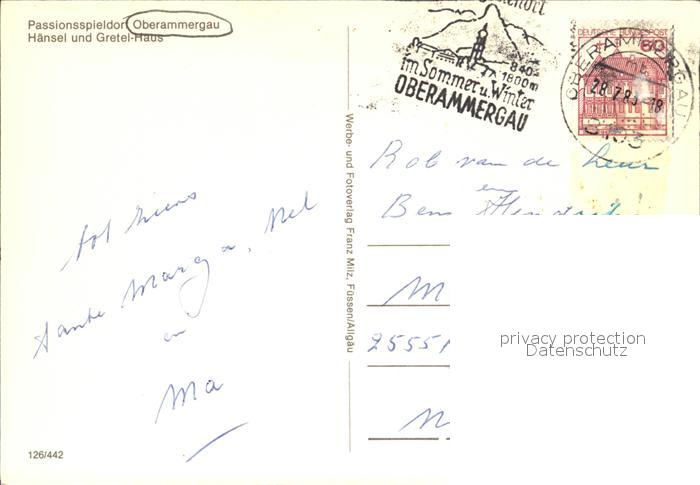 Passionsspieldorf Oberammergau
Hänsel und Gretel-Haus
840-
1800m
im Sommer u. Winter
OBERAMMERGAU
DEUTSCHE BUNDESPOST
60
OBERAMMERGAU
28.7.8
-18
8103
Werbe- und Fotoverlag Franz Milz, Füssen/Allgäu
Rob van de Leur
en
Ben
tante Marga, Nel
en
Ma
M
2555
privacy protection
Datenschutz
126/442